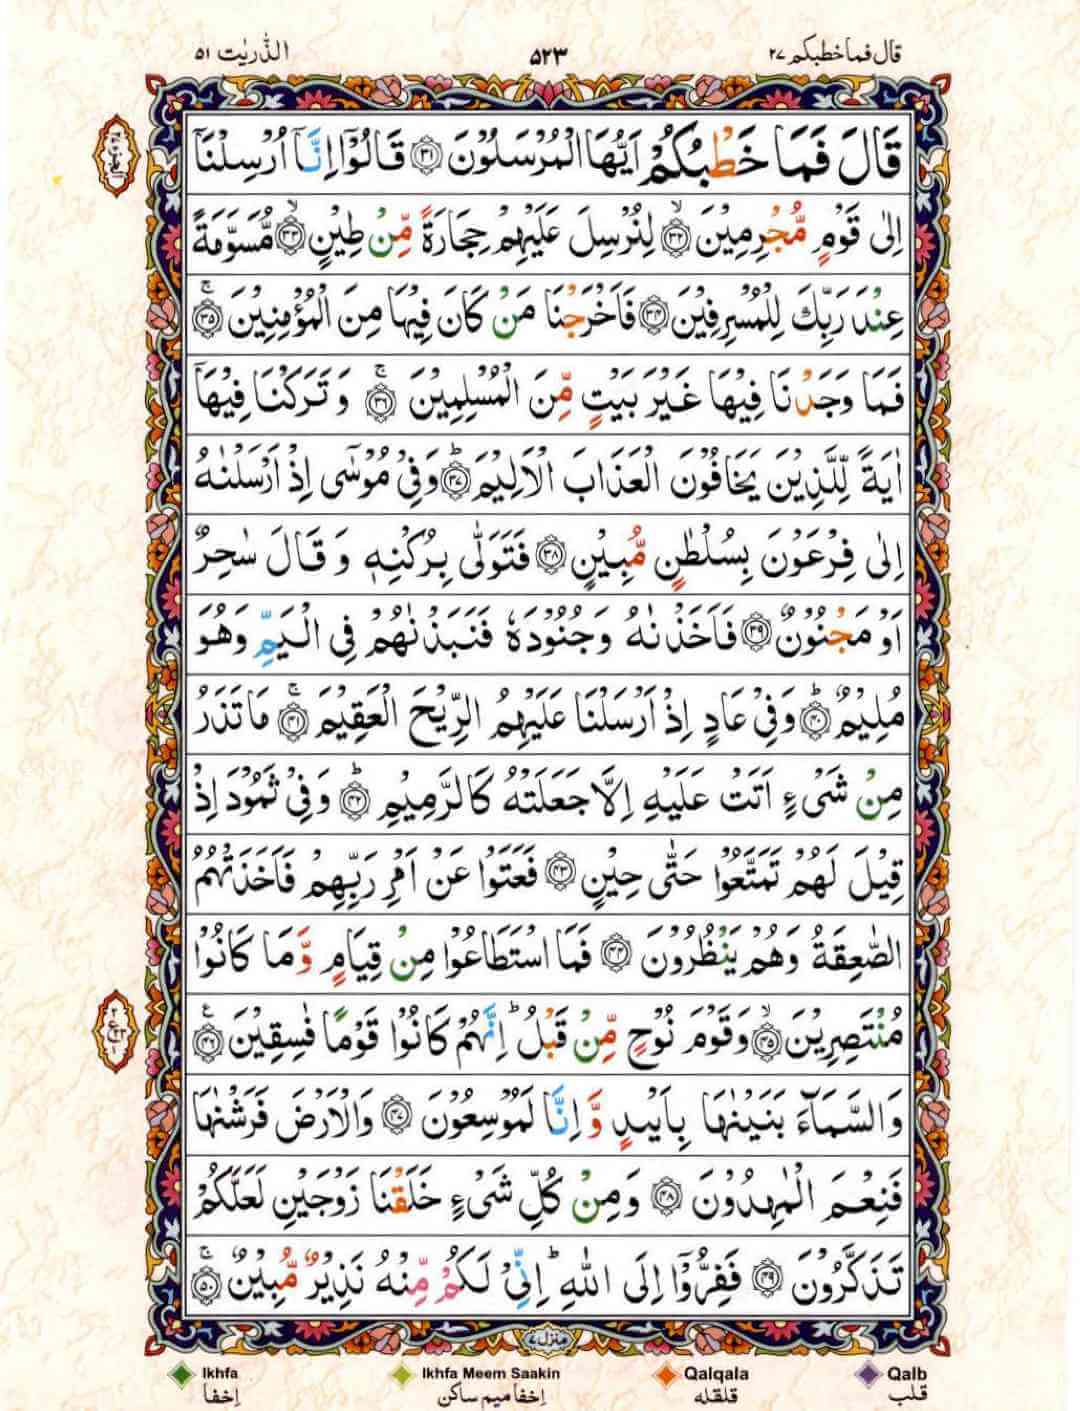 قال فما خطبکم ۲۷ ۵۲۳ الذّٰریٰت ۵۱
قَالَ فَمَا خَطْبُكُمْ اَيُّهَا الْمُرْسَلُوْنَ ﴿۳۱﴾ قَالُوْۤا اِنَّاۤ اُرْسِلْنَاۤ
اِلٰى قَوْمٍ مُّجْرِمِيْنَ ﴿۳۲﴾ۙ لِنُرْسِلَ عَلَيْهِمْ حِجَارَةً مِّنْ طِيْنٍ ﴿۳۳﴾ۙ مُّسَوَّمَةً
عِنْدَ رَبِّكَ لِلْمُسْرِفِيْنَ ﴿۳۴﴾ فَاَخْرَجْنَا مَنْ كَانَ فِيْهَا مِنَ الْمُؤْمِنِيْنَ ﴿۳۵﴾ۚ
فَمَا وَجَدْنَا فِيْهَا غَيْرَ بَيْتٍ مِّنَ الْمُسْلِمِيْنَ ﴿۳۶﴾ۚ وَتَرَكْنَا فِيْهَاۤ
اٰيَةً لِّلَّذِيْنَ يَخَافُوْنَ الْعَذَابَ الْاَلِيْمَ ﴿۳۷﴾ؕ وَفِيْ مُوْسٰۤى اِذْ اَرْسَلْنٰهُ
اِلٰى فِرْعَوْنَ بِسُلْطٰنٍ مُّبِيْنٍ ﴿۳۸﴾ فَتَوَلّٰى بِرُكْنِهٖ وَقَالَ سٰحِرٌ
اَوْ مَجْنُوْنٌ ﴿۳۹﴾ فَاَخَذْنٰهُ وَجُنُوْدَهٗ فَنَبَذْنٰهُمْ فِى الْيَمِّ وَهُوَ
مُلِيْمٌ ﴿۴۰﴾ؕ وَفِيْ عَادٍ اِذْ اَرْسَلْنَا عَلَيْهِمُ الرِّيْحَ الْعَقِيْمَ ﴿۴۱﴾ۚ مَا تَذَرُ
مِنْ شَىْءٍ اَتَتْ عَلَيْهِ اِلَّا جَعَلَتْهُ كَالرَّمِيْمِ ﴿۴۲﴾ؕ وَفِيْ ثَمُوْدَ اِذْ
قِيْلَ لَهُمْ تَمَتَّعُوْا حَتّٰى حِيْنٍ ﴿۴۳﴾ فَعَتَوْا عَنْ اَمْرِ رَبِّهِمْ فَاَخَذَتْهُمُ
الصّٰعِقَةُ وَهُمْ يَنْظُرُوْنَ ﴿۴۴﴾ فَمَا اسْتَطَاعُوْا مِنْ قِيَامٍ وَّمَا كَانُوْا
مُنْتَصِرِيْنَ ﴿۴۵﴾ۙ وَقَوْمَ نُوْحٍ مِّنْ قَبْلُؕ اِنَّهُمْ كَانُوْا قَوْمًا فٰسِقِيْنَ ﴿۴۶﴾
وَالسَّمَآءَ بَنَيْنٰهَا بِاَيْىدٍ وَّاِنَّا لَمُوْسِعُوْنَ ﴿۴۷﴾ وَالْاَرْضَ فَرَشْنٰهَا
فَنِعْمَ الْمٰهِدُوْنَ ﴿۴۸﴾ وَمِنْ كُلِّ شَىْءٍ خَلَقْنَا زَوْجَيْنِ لَعَلَّكُمْ
تَذَكَّرُوْنَ ﴿۴۹﴾ فَفِرُّوْۤا اِلَى اللّٰهِؕ اِنِّيْ لَكُمْ مِّنْهُ نَذِيْرٌ مُّبِيْنٌ ﴿۵۰﴾ۚ
منزل ۷
Ikhfa Ikhfa Meem Saakin Qalqala Qalb
إخفا إخفا میم ساکن قلقله قلب